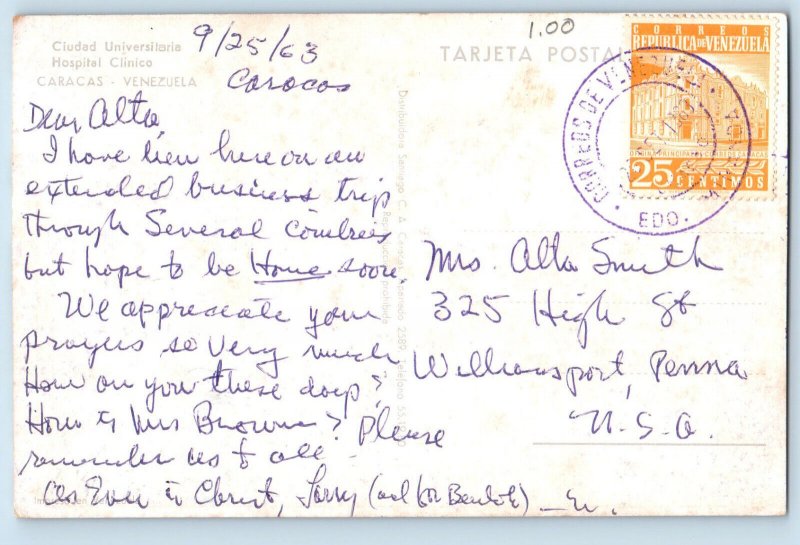 Ciudad Universitaria
Hospital Clínico
CARACAS - VENEZUELA
9/25/63
Caracas
1.00
TARJETA POSTAL
CORREOS
REPUBLICA DE VENEZUELA
25 CENTIMOS
CORREOS DE VENEZUELA
EDO.
Dear Alta,
I have been here on an
extended business trip
through Several Countries
but hope to be Home soon
We appreciate your
prayers so very much
How are you these days?
How is Mrs Brown? Please
remember us to all -
As Ever in Christ, Larry
Mrs. Alta Smith
325 High St
Williamsport, Penna
U.S.A.
Distribuidora Santiago C. A. Caracas
Reproducción prohibida